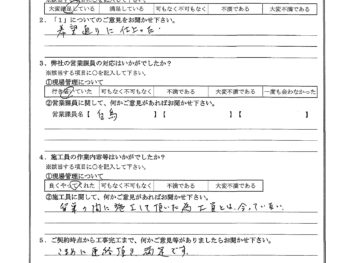 大変満足している 満足している 可もなく不可もなく 不満である 大変不満である
2．「1」についてのご意見をお聞かせ下さい。
希望通りに仕上った
3．弊社の営業課員の対応はいかがでしたか？
※該当する項目に○を記入して下さい。
①現場管理について
行き届いていた 可もなく不可もなく 不満である 大変不満である 一度も会わなかった
②営業課員に関して、何かご意見があればお聞かせ下さい。
営業課員名【 】【 】【 】
4．施工員の作業内容等はいかがでしたか？
※該当する項目に○を記入して下さい。
①現場管理について
良くやってくれた 可もなく不可もなく 不満である 大変不満である
②施工員に関して、何かご意見があればお聞かせ下さい。
営業の間に施工して頂いた為 工員とは 会っていない
5．ご契約時点から工事完工まで、何かご意見等がありましたらお聞かせ下さい。
こまめに連絡頂き 満足です。